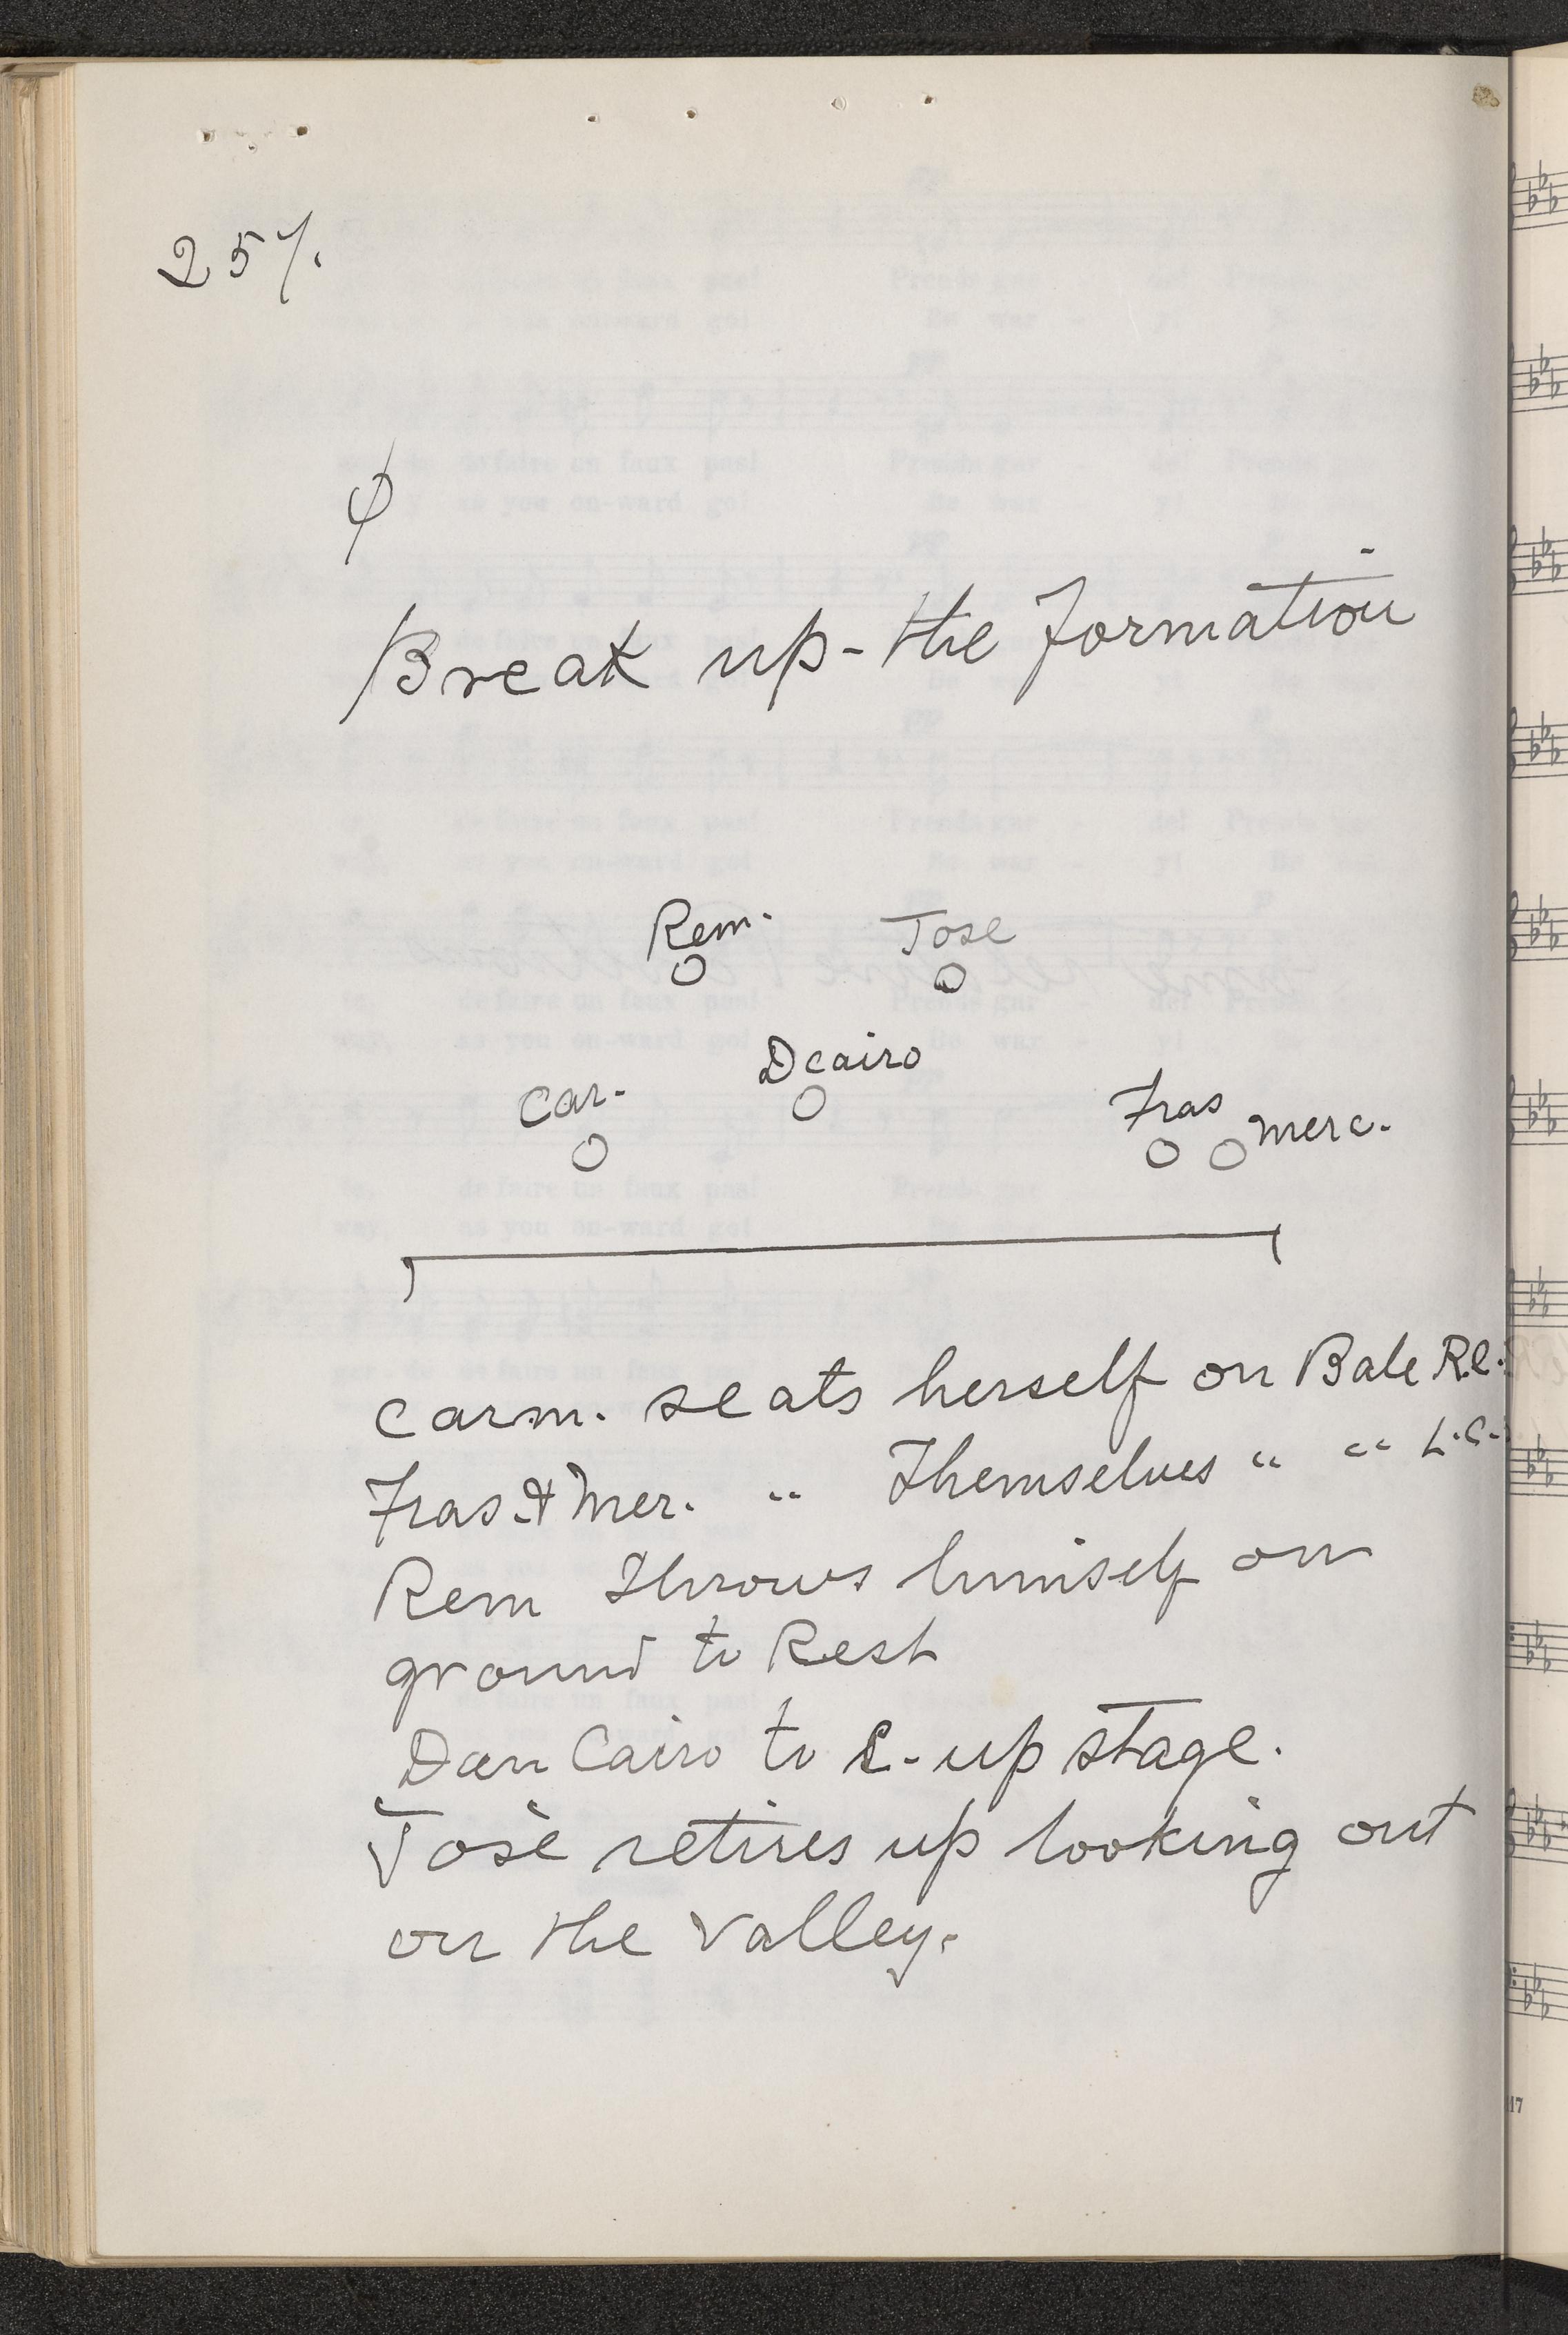 257.
φ
Break up-the formation
Rem. Jose
Dcairo
Car. Fras merc.
Carm. seats herself on Bale R.C.
Fras. & Mer. " Themselves " " L.C.
Rem Throws himself on
ground to Rest
Dan Cairo to C-up stage.
José retires up looking out
on the valley.
17